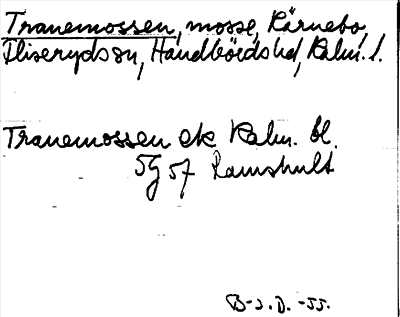 Tranemossen, mosse, Kärnebo,
Fliseryds sn, Handbörds hd, Kalm. l.
Tranemossen ek Kalm. bl.
5G 57 Ramshult
B-J. D. -55.